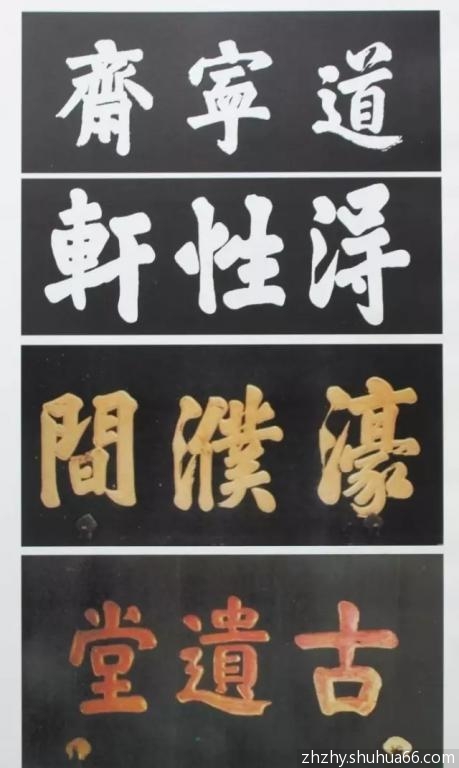 道寧齋
得性軒
濠濮間
古遺堂
zhzhy.shuhua66.com